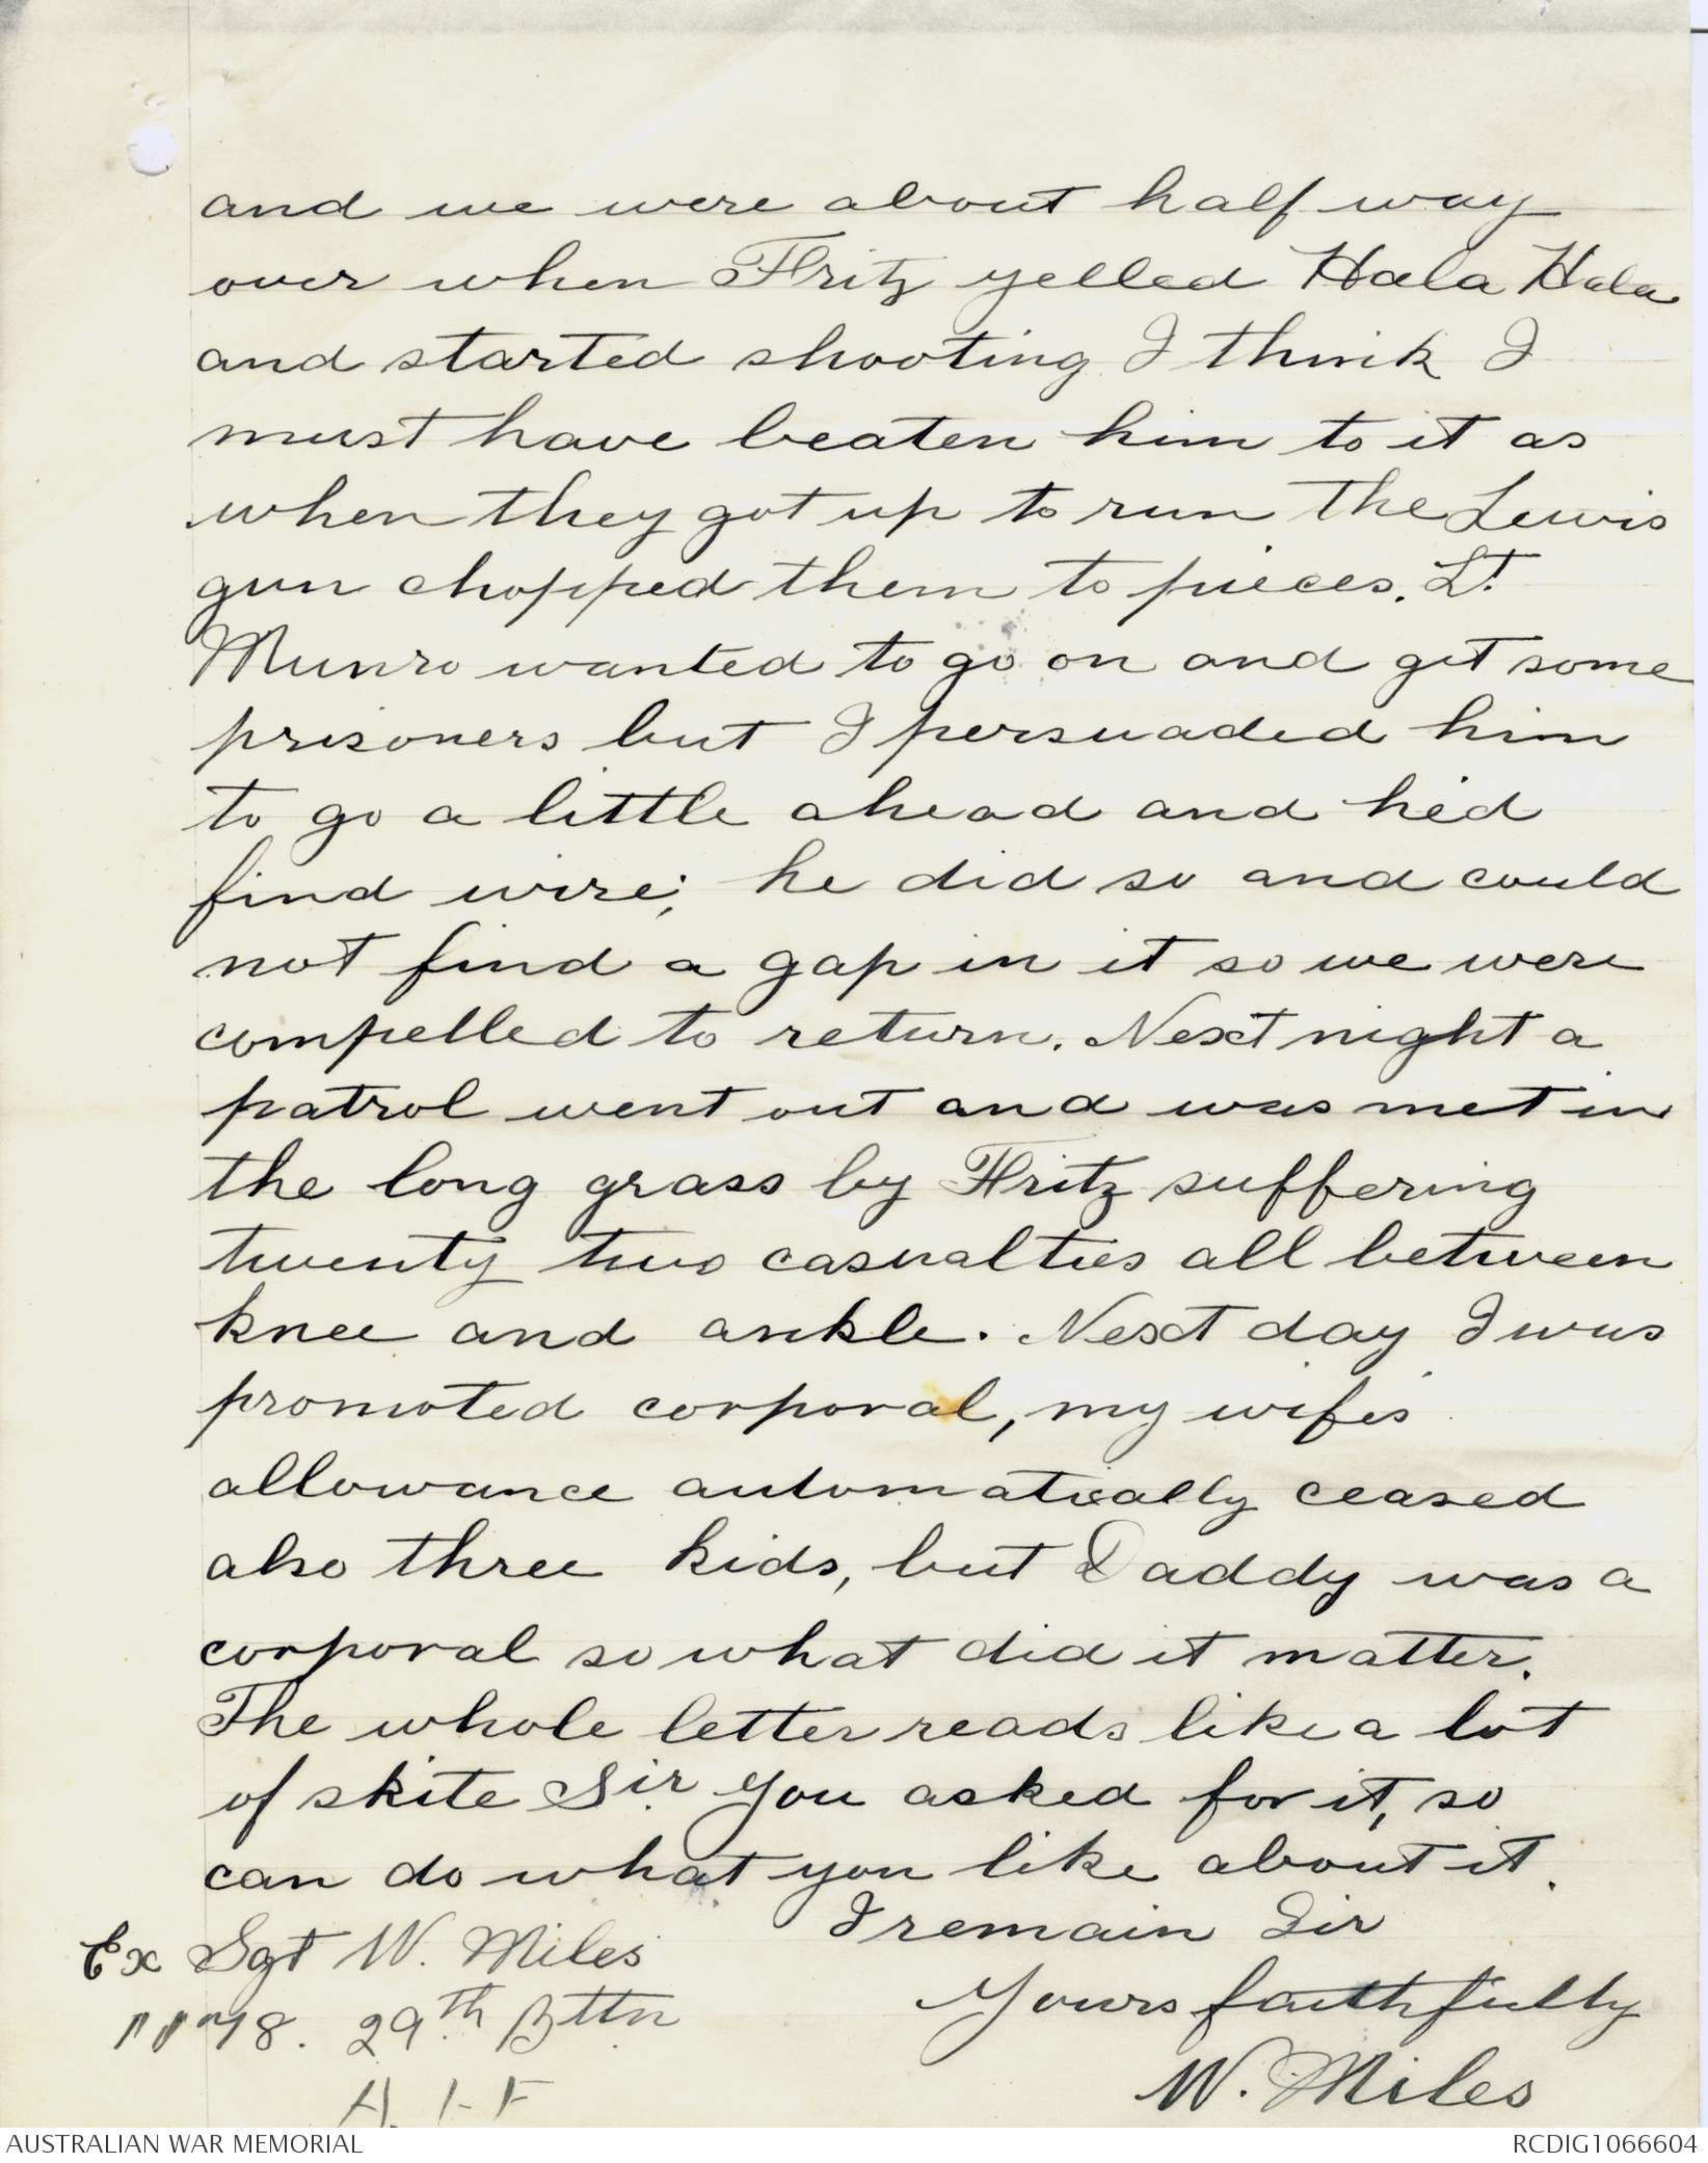 and we were about half way
over when Fritz yelled Hala Hala
and started shooting I think I
must have beaten him to it as
when they got up to run the Lewis
gun chopped them to pieces. Lt.
Munro wanted to go on and get some
prisoners but I persuaded him
to go a little ahead and he'd
find wire; he did so and could
not find a gap in it so we were
compelled to return. Next night a
patrol went out and was met in
the long grass by Fritz suffering
twenty two casualties all between
knee and ankle. Next day I was
promoted corporal, my wife's
allowance automatically ceased
also three kids, but Daddy was a
corporal so what did it matter.
The whole letter reads like a lot
of skite Sir you asked for it, so
can do what you like about it.
I remain Sir
Yours faithfully
W. Miles
Ex Sgt W. Miles
29th Bttn
A.I.F
AUSTRALIAN WAR MEMORIAL
RCDIG1066604